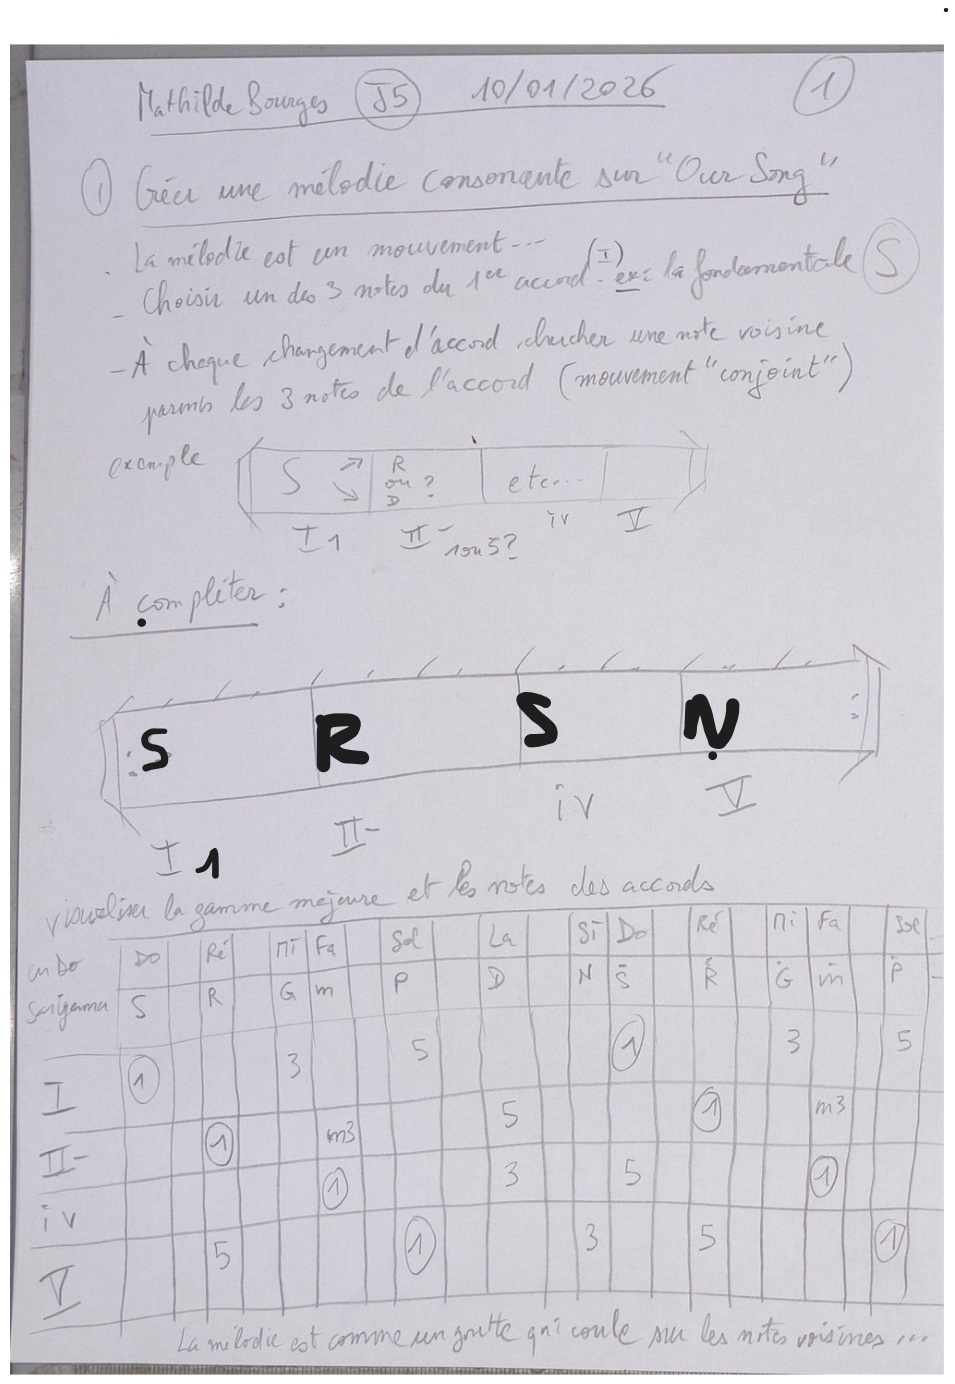 Mathilde Bourges J5 10/01/2026 1
1 Créer une mélodie consonante sur "Our Song"
. La mélodie est un mouvement...
- Choisir un des 3 notes du 1er accord (I). ex: la fondamentale S
- À chaque changement d'accord chercher une note voisine
parmis les 3 notes de l'accord (mouvement "conjoint")
exemple
S R ou D ? etc...
I 1 II- 1 ou 5? iv V
À compléter :
S R S N
I 1 II- iv V
visualiser la gamme majeure et les notes des accords
en Do Do Ré Mi Fa Sol La Si Do Ré Mi Fa Sol
Sarigama S R G m P D N Ṡ Ṙ Ġ ṁ Ṗ
I 1 3 5 1 3 5
II- 1 m3 5 1 m3
iv 1 3 5 1
V 5 1 3 5 1
La mélodie est comme un goutte qui coule sur les notes voisines ...